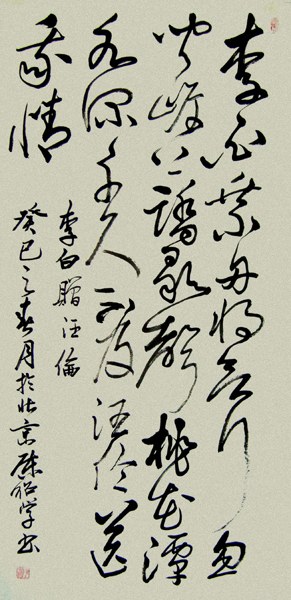 李白乘舟將欲行忽
聞岸上踏歌聲桃花潭
水深千尺不及汪倫送
我情
李白贈汪倫
癸巳之春月於北京